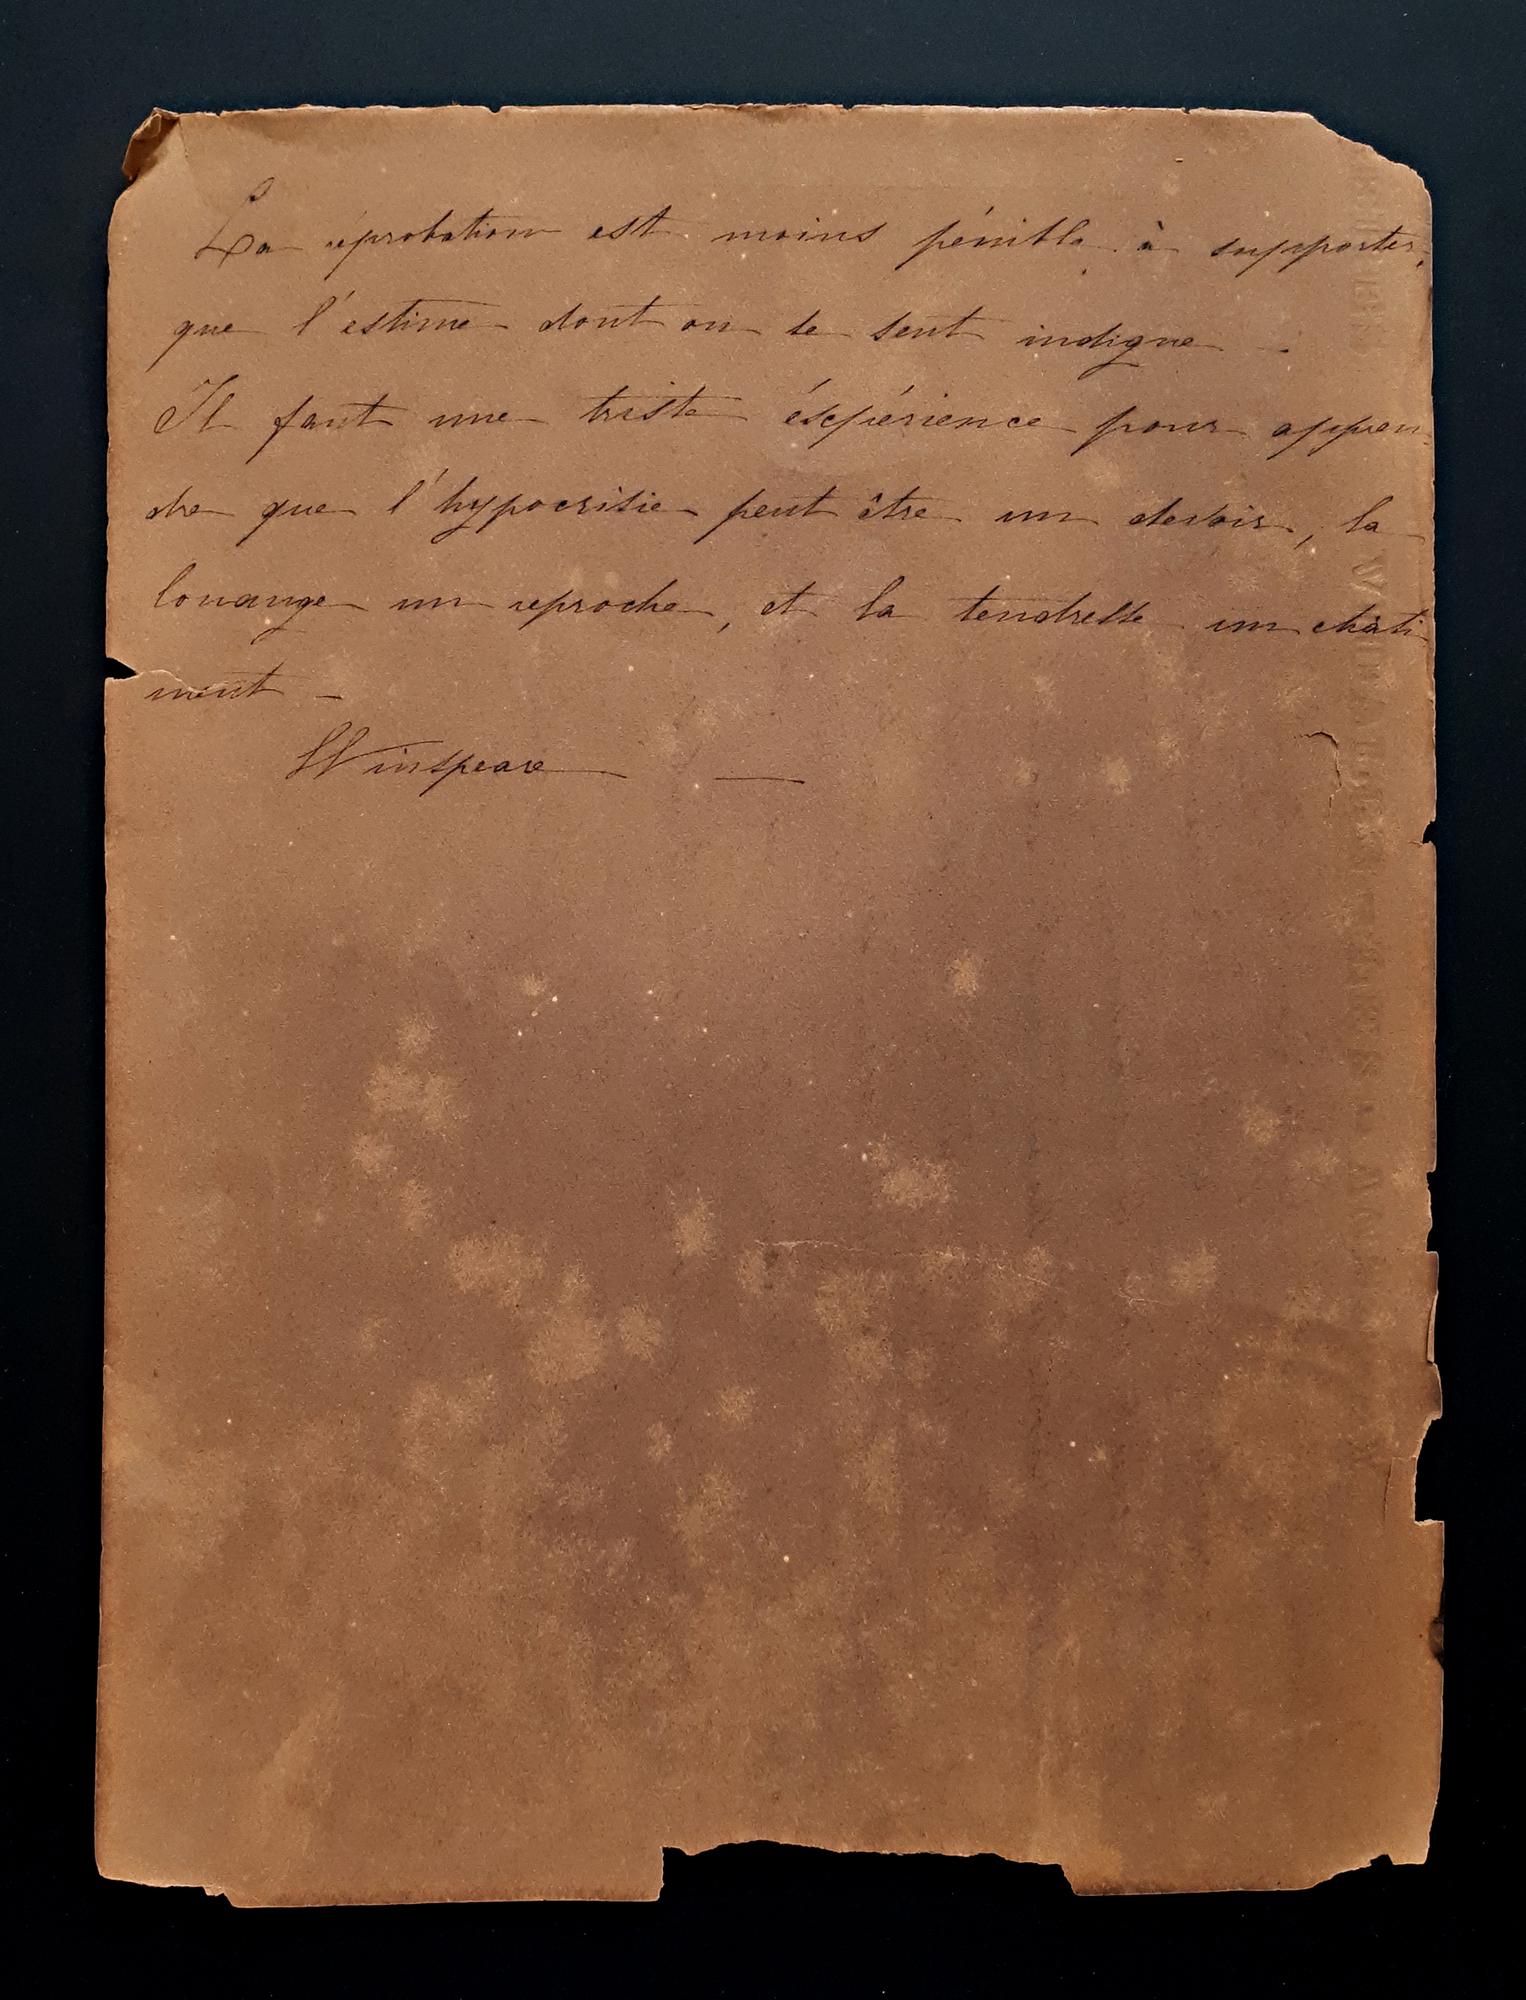 La réprobation est moins pénible à supporter,
que l'estime dont on se sent indigne -.
Il faut une triste éxpérience pour appren-
dre que l'hypocrisie peut être un devoir, la
louange un reproche, et la tendresse un châti-
ment -
Winspeare —